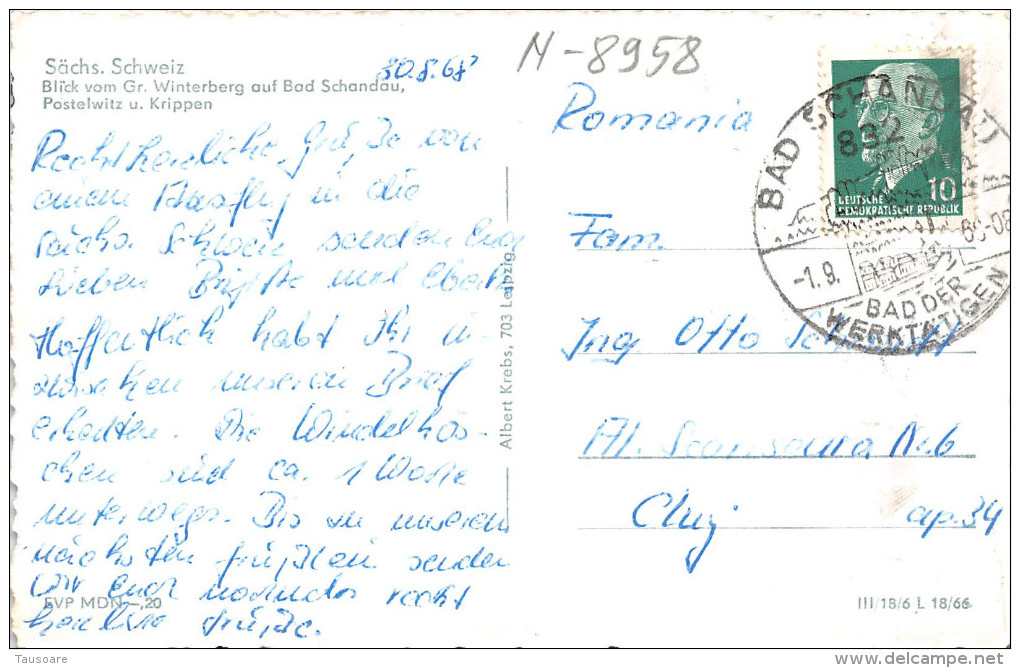 Sächs. Schweiz
Blick vom Gr. Winterberg auf Bad Schandau,
Postelwitz u. Krippen
30.8.68
N-8958
Recht herzliche Grüße von
einem Ausflug in die
sächs. Schweiz senden Euch
lieben Brigitte und
Hoffentlich habt Ihr in-
zwischen unseren Brief
erhalten. Die Windelhös-
chen sind ca. 1 Woche
unterwegs. Bis zu unseren
nächsten Grüßen senden
wir Euch nochmals recht
herzliche Grüße.
EVP MDN —,20
Albert Krebs, 703 Leipzig
Romania
Fam.
Ing Otto
Al. Nr. 6
Cluj ap. 34
III/18/6 L 18/66
10
DEUTSCHE
DEMOKRATISCHE REPUBLIK
BAD SCHANDAU
832
-1.9.
BAD DER
WERKTÄTIGEN
Tausoare
delcampe.net